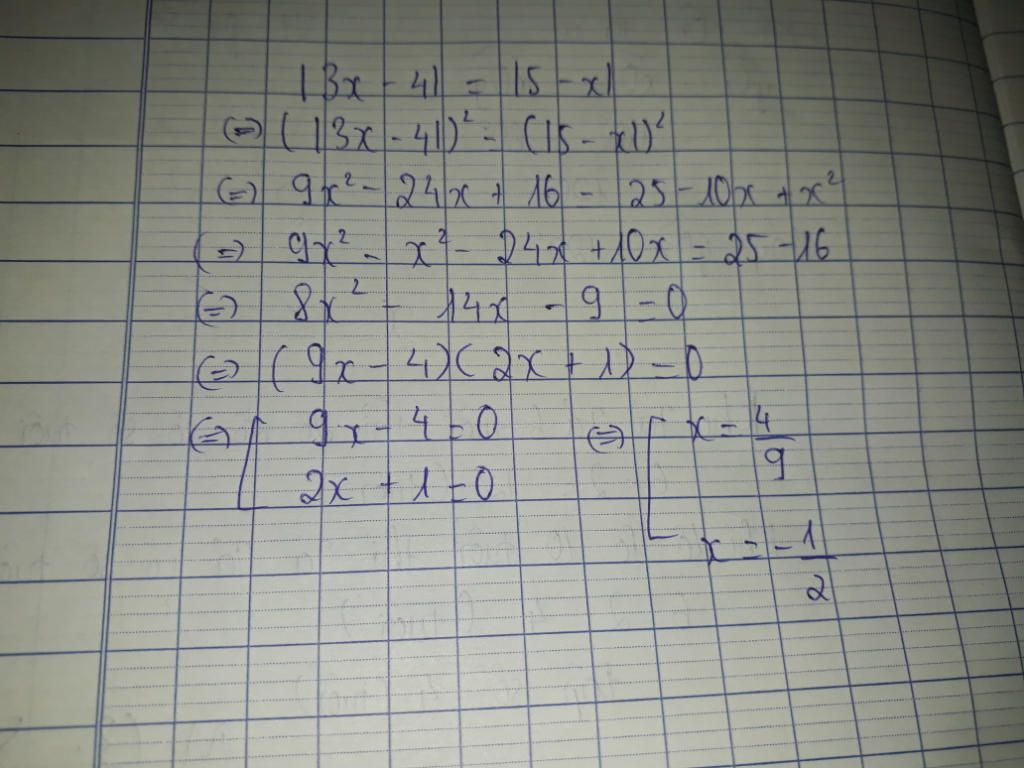 |3x - 4| = |5 - x|
(=) (|3x - 4|)² = (|5 - x|)²
(=) 9x² - 24x + 16 = 25 - 10x + x²
(=) 9x² - x² - 24x + 10x = 25 - 16
(=) 8x² - 14x - 9 = 0
(=) (9x - 4)(2x + 1) = 0
(=) [ 9x - 4 = 0 (=) [ x = 4/9
2x + 1 = 0
x = -1/2